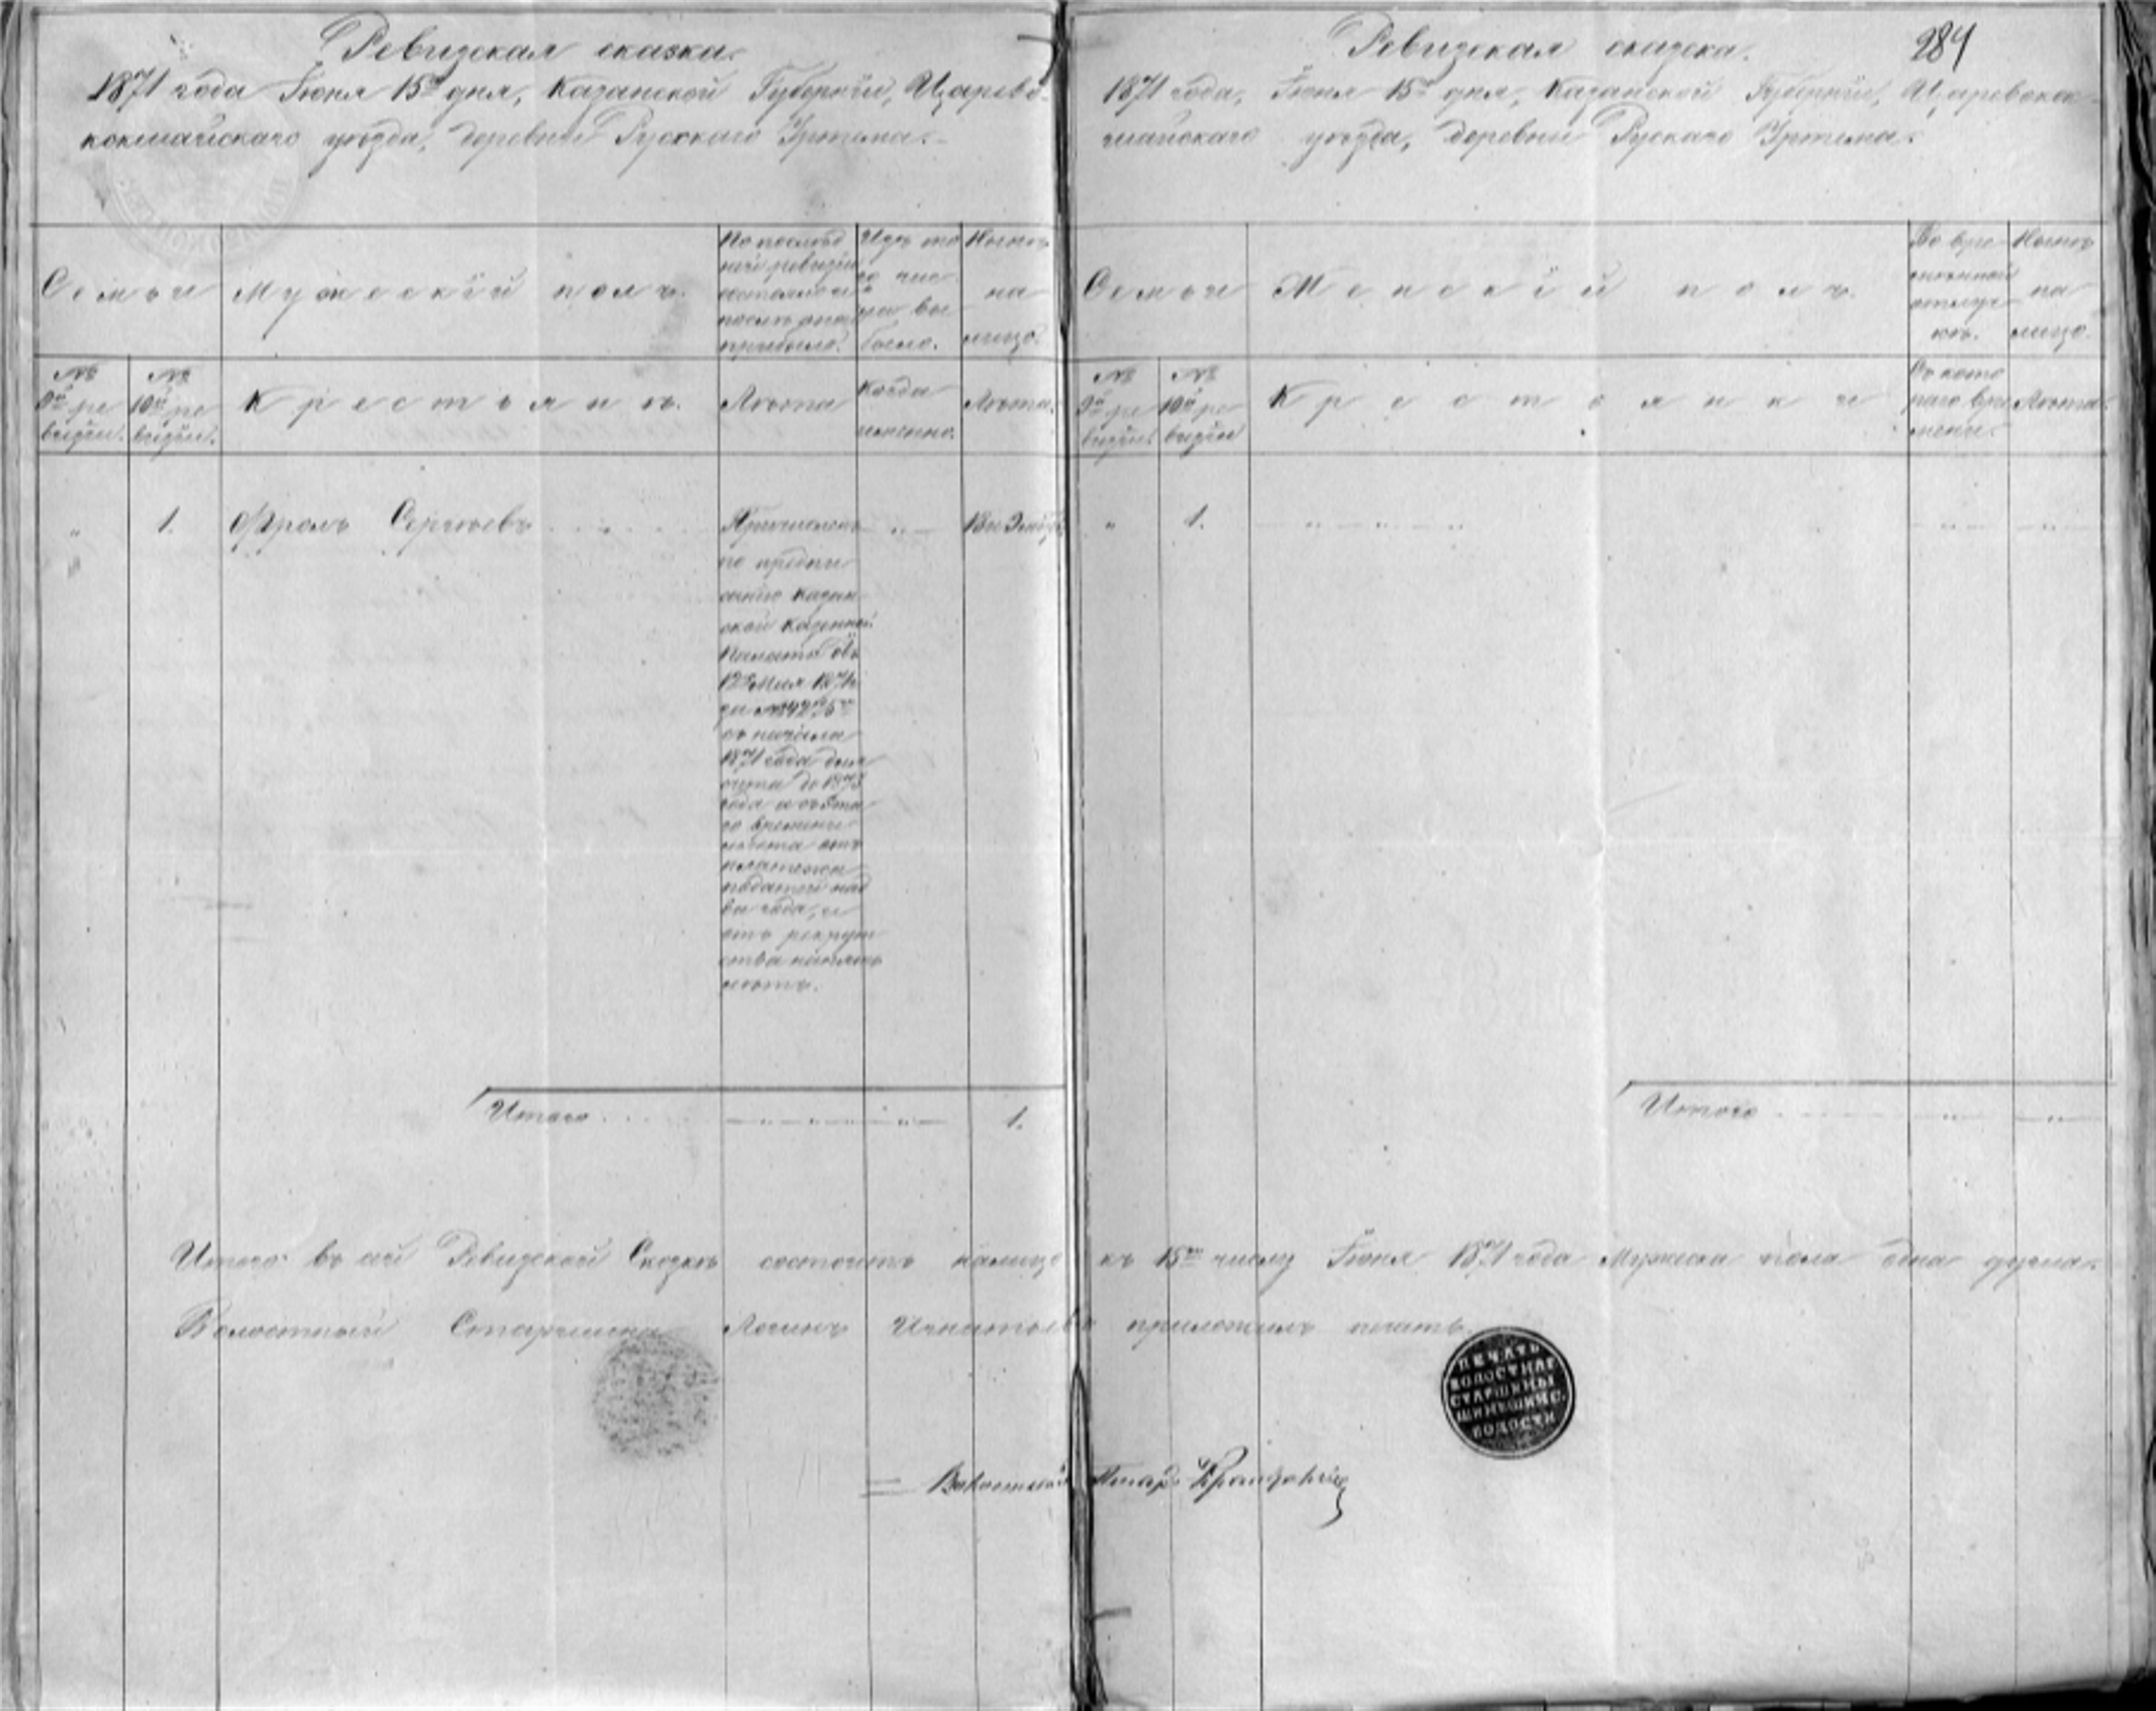 Ревизская сказка.
1871 года Іюня 15го дня, Казанской Губерніи, Царево-
кокшайскаго уѣзда, деревни Русскаго Уртема.
Семьи
Мужескій полъ.
По послѣд
ней ревизіи
состояло и
послѣ оной
прибыло.
Изъ то
го чис
ла вы
было.
Нынѣ
на
лицо.
№
9й ре
визіи.
№
10й ре
визіи.
Крестьянъ.
Лѣта
Когда
именно.
Лѣта.
"
1.
Фролъ Сергѣевъ
Причисленъ
по предпи
санію Казан
ской Казенной
Палаты отъ
12 Мая 1871 г.
за №
съ начала
1871 года для
счета до 1873
года а съ
го времени
льгота отъ
платежа
податей на д
ва года, и
отъ рекрут
ства на
лѣтъ.
Итого
1.
Ревизская сказка.
284
1871 года, Іюня 15го дня, Казанской Губерніи, Царевокок-
шайскаго уѣзда, деревни Рускаго Уртема.
Семьи
Женскій полъ.
Во вре
менной
отлуч
кѣ.
Нынѣ
на
лицо.
№
9й ре
визіи.
№
10й ре
визіи
Крестьянки
Съ кото
раго вре
мени.
Лѣта.
"
1.
Итого
Итого въ сей Ревизской Сказкѣ состоитъ налицо къ 15му числу Іюня 1871 года Мужеска пола одна душа.
Волостный Старшина Логинъ Игнатьевъ приложилъ печать.
ПЕЧАТЬ
ВОЛОСТНАГ
СТАРШИНЫ
ВОЛОСТИ
Волостной Писарь